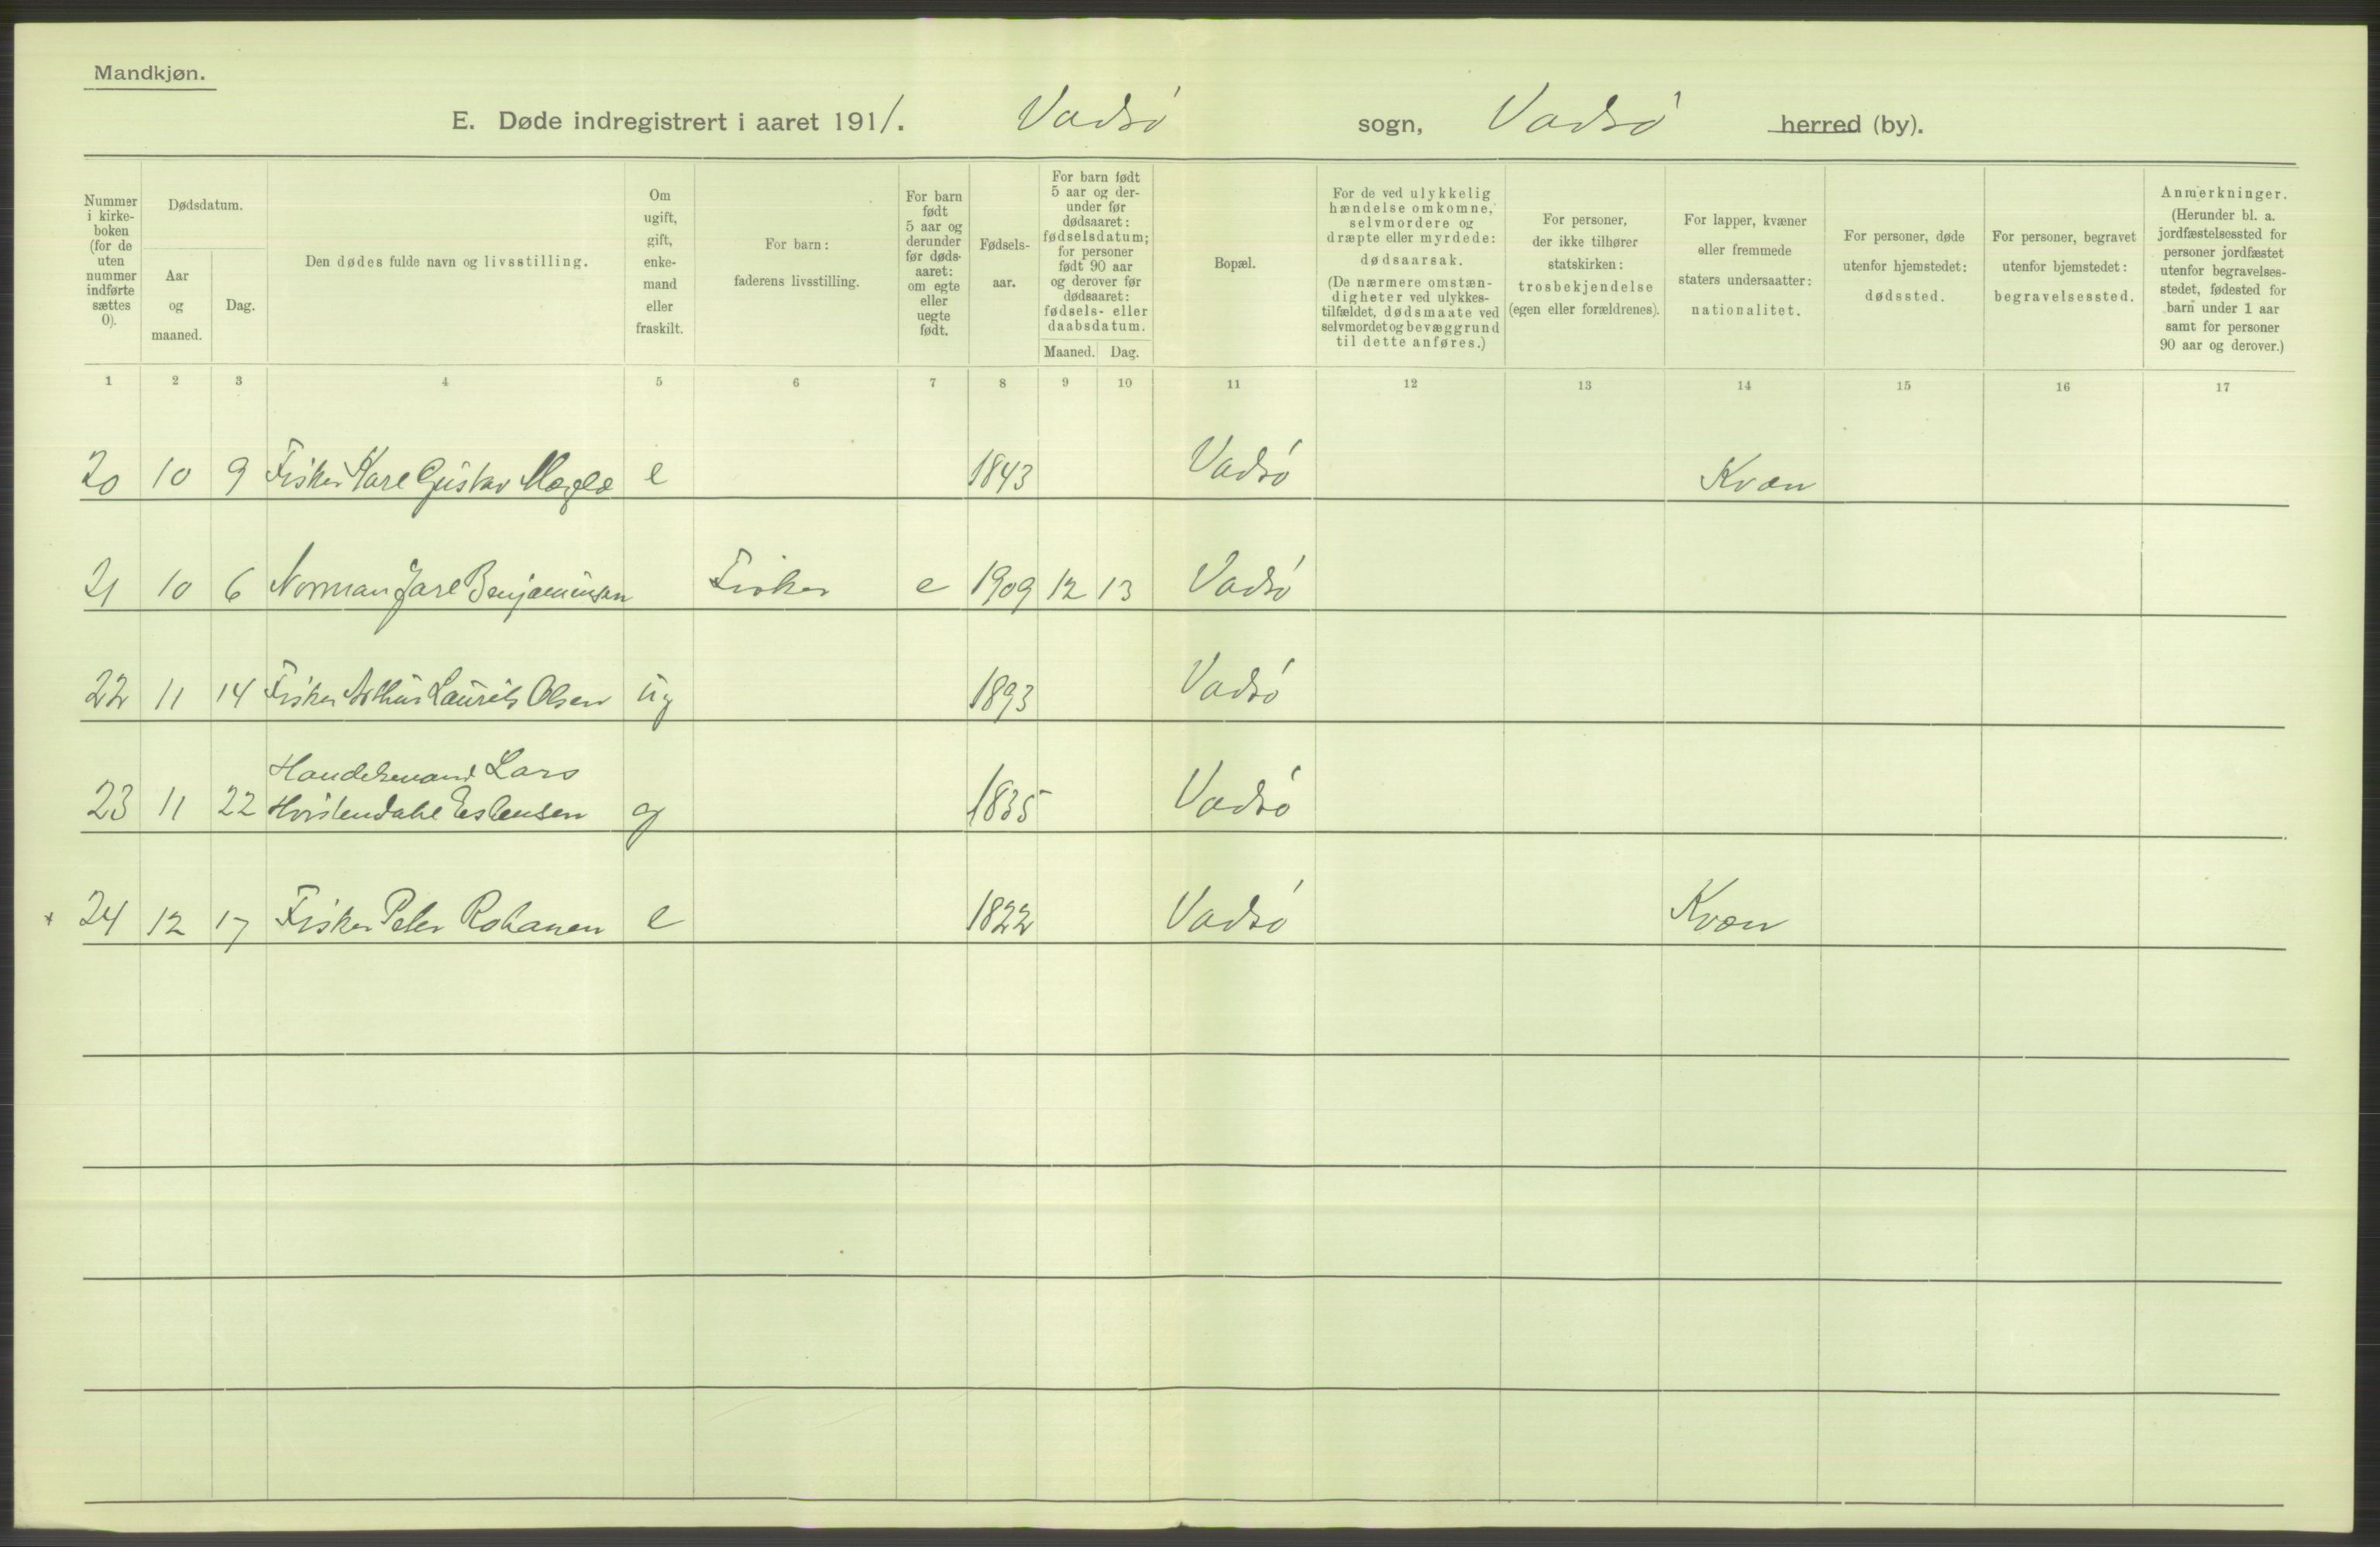 Mandkjøn.
E. Døde indregistrert i aaret 1911. Vadsø sogn, Vadsø herred (by).
Nummer i kirke-boken (for de uten nummer indførte sættes 0).
Dødsdatum.
Aar og maaned.
Dag.
Den dødes fulde navn og livsstilling.
Om ugift, gift, enke-mand eller fraskilt.
For barn: faderens livsstilling.
For barn født 5 aar og derunder før døds-aaret: om egte eller uegte født.
Fødsels-aar.
For barn født 5 aar og der-under før dødsaaret: fødselsdatum; for personer født 90 aar og derover før dødsaaret: fødsels- eller daabsdatum.
Maaned. Dag.
Bopæl.
For de ved ulykkelig hændelse omkomne, selvmordere og dræpte eller myrdede: dødsaarsak.
(De nærmere omstæn-digheter ved ulykkes-tilfældet, dødsmaate ved selvmordet og bevæggrund til dette anføres.)
For personer, der ikke tilhører statskirken: trosbekjendelse (egen eller forældrenes).
For lapper, kvæner eller fremmede staters undersaatter: nationalitet.
For personer, døde utenfor hjemstedet: dødssted.
For personer, begravet utenfor hjemstedet: begravelsessted.
Anmerkninger.
(Herunder bl. a. jordfæstelsessted for personer jordfæstet utenfor begravelses-stedet, fødested for barn under 1 aar samt for personer 90 aar og derover.)
1 2 3 4 5 6 7 8 9 10 11 12 13 14 15 16 17
20 10 9 Fisker Karl Gustav e 1843 Vadsø Kvæn
21 10 6 Norman Jarl Benjaminsen Fisker e 1909 12 13 Vadsø
22 11 14 Fisker Arthur Laurits Olsen ug 1893 Vadsø
Handelsmand Lars
23 11 22 Hvistendahl Esbensen g 1835 Vadsø
24 12 17 Fisker Peter e 1822 Vadsø Kvæn